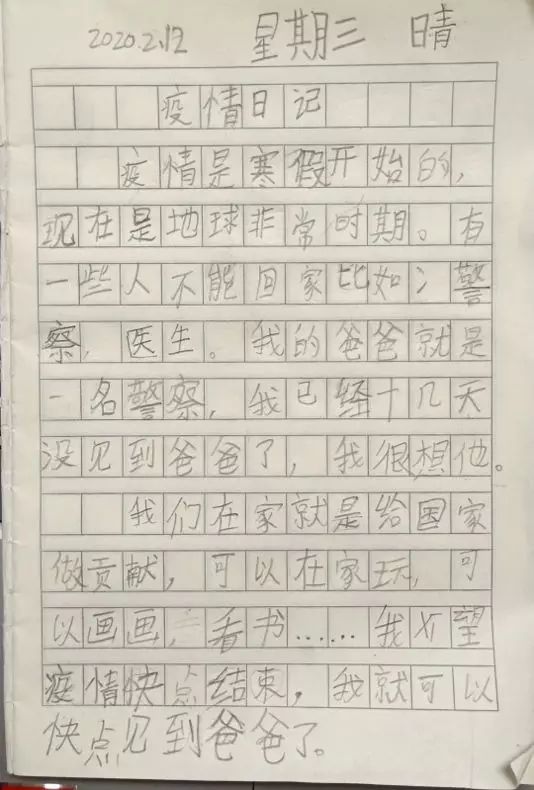 2020.2.12 星期三 晴
疫情日记
疫情是寒假开始的，
现在是地球非常时期。有
一些人不能回家比如：警
察，医生。我的爸爸就是
一名警察，我已经十几天
没见到爸爸了，我很想他。
我们在家就是给国家
做贡献，可以在家玩，可
以画画，看书……我希望
疫情快点结束，我就可以
快点见到爸爸了。